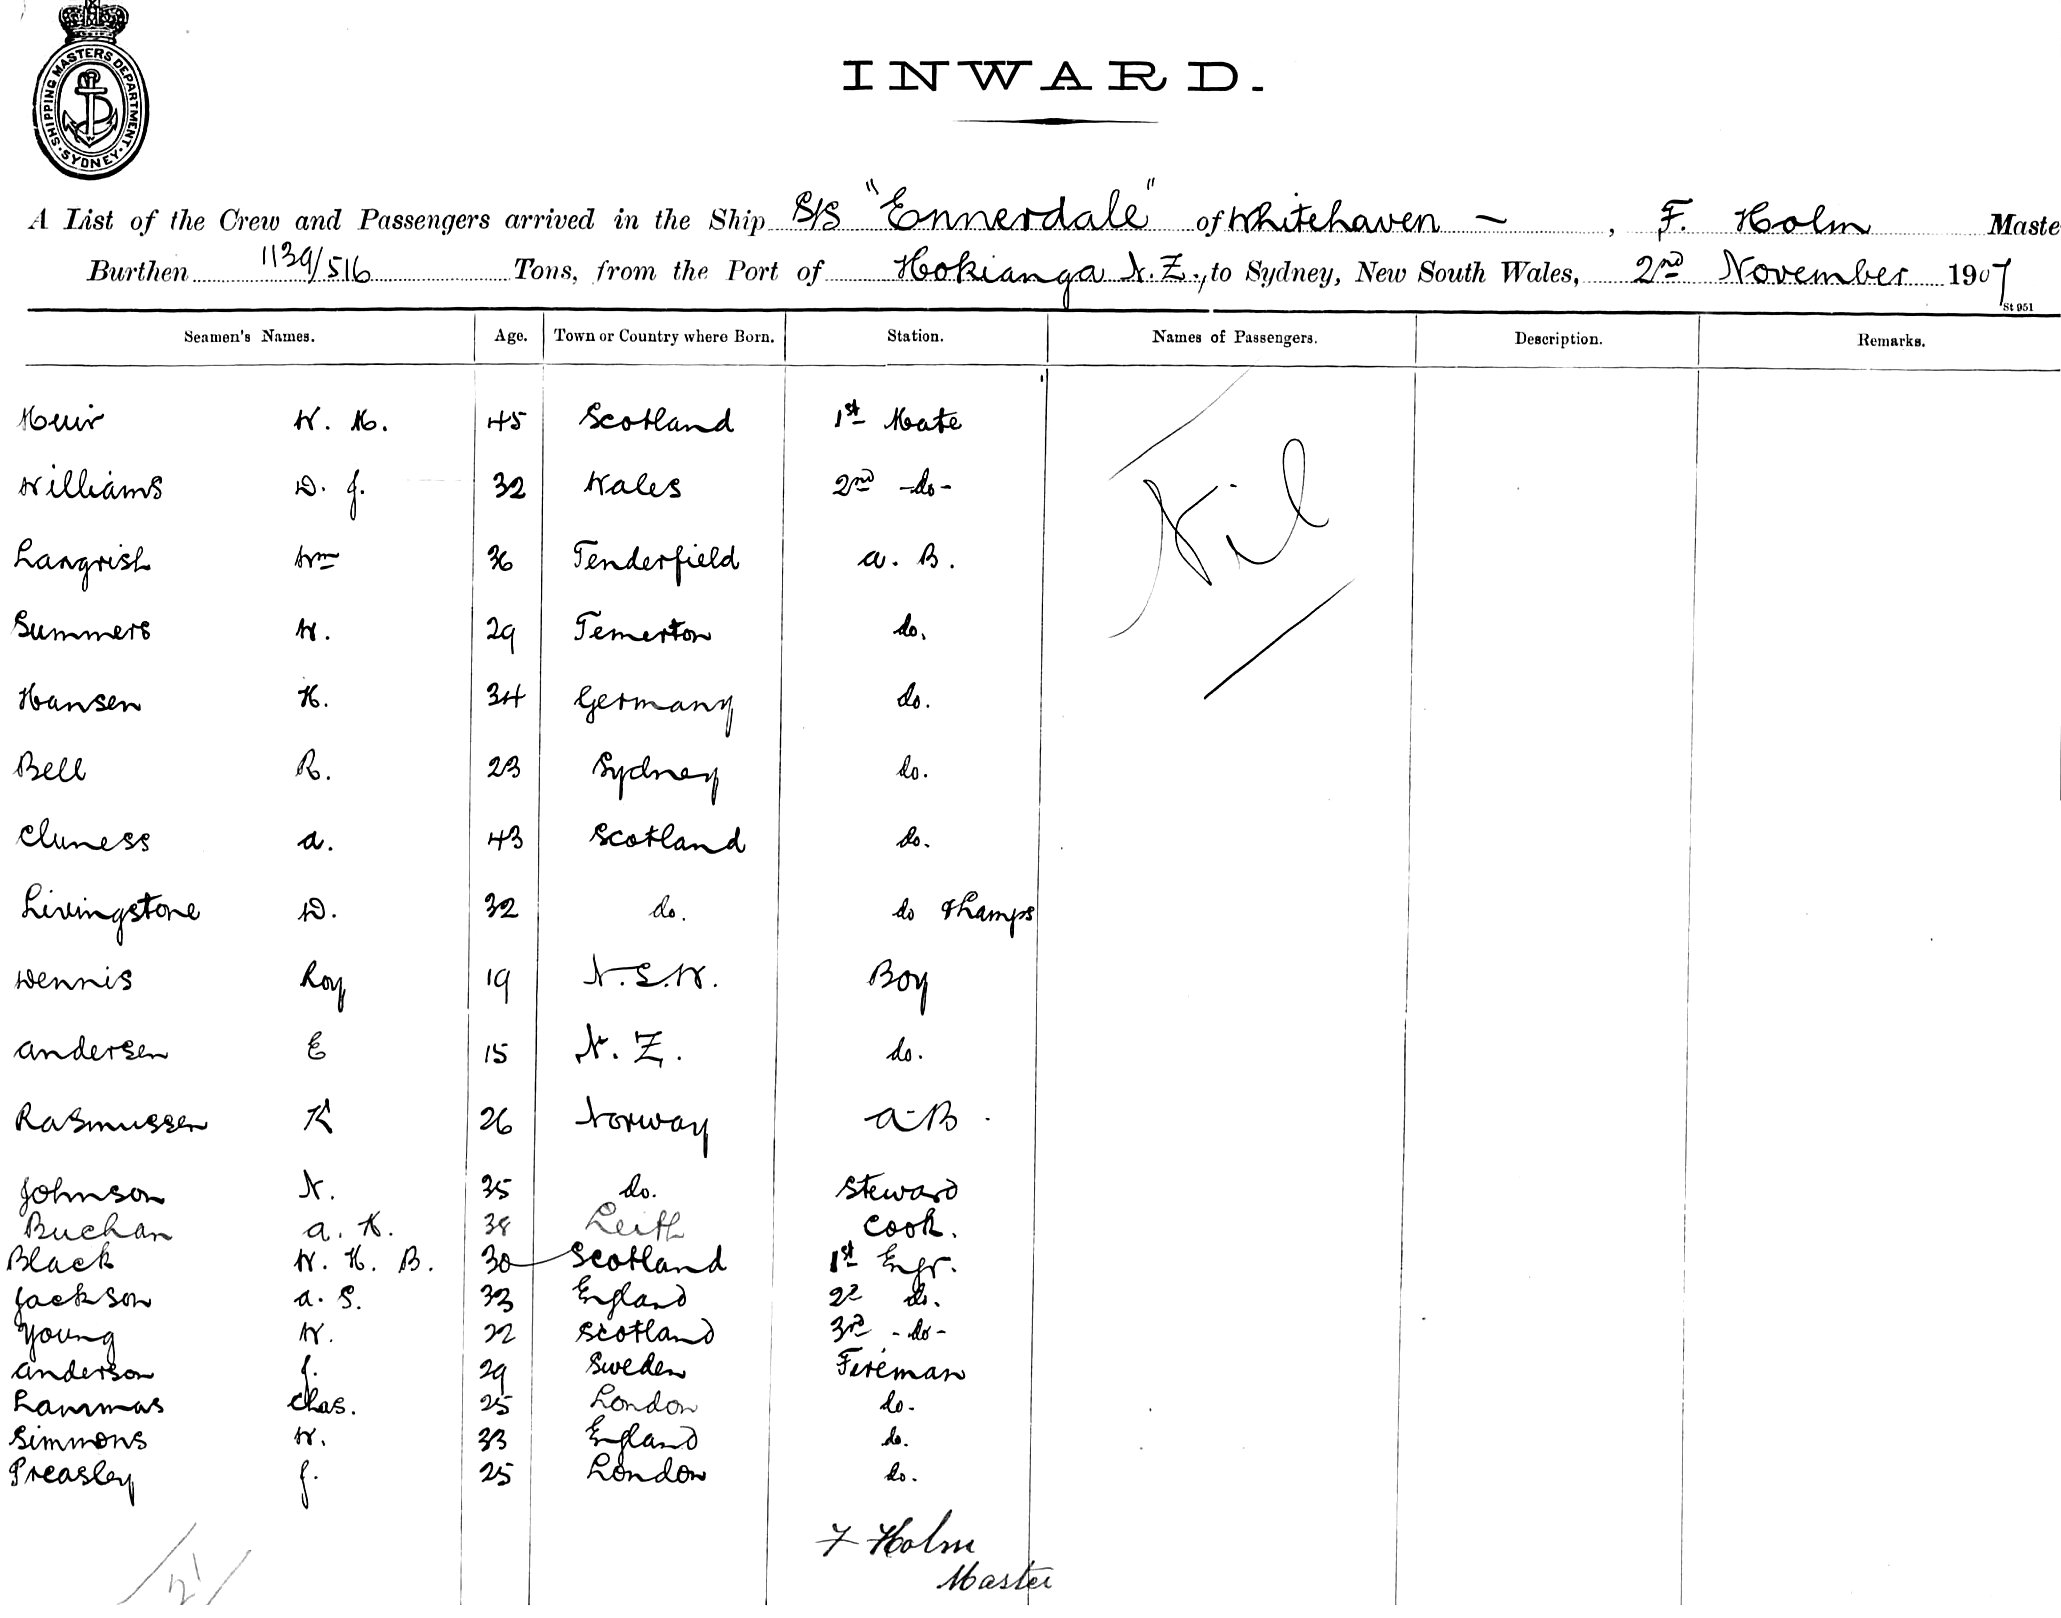 SHIPPING MASTERS DEPARTMENT. SYDNEY.
INWARD.
A List of the Crew and Passengers arrived in the Ship S/S "Ennerdale" of Whitehaven — , F. Holm Maste
Burthen 1139/516 Tons, from the Port of Hokianga N.Z., to Sydney, New South Wales, 2nd November 1907
St 951
Seamen's Names. Age. Town or Country where Born. Station. Names of Passengers. Description. Remarks.
Nil
Muir W. M. 45 Scotland 1st Mate
Williams D. J. 32 Wales 2nd -do-
Langrish Wm 36 Tenderfield A. B.
Summers W. 29 Temerton do.
Hansen H. 34 Germany do.
Bell R. 23 Sydney do.
Cluness A. 43 Scotland do.
Livingstone D. 32 do. do & Lamps
Dennis Roy 19 N.S.W. Boy
Andersen E 15 N. Z. do.
Rasmussen K 26 Norway A-B.
Johnson N. 35 do. Steward
Buchan A. H. 38 Leith Cook.
Black W. H. B. 30 Scotland 1st Engr.
Jackson A. S. 33 England 2d do.
Young W. 22 Scotland 3rd -do-
Anderson J. 29 Sweden Fireman
Lammas Chas. 25 London do.
Simmons W. 33 England do.
Preasley J. 25 London do.
F Holm
Master
21